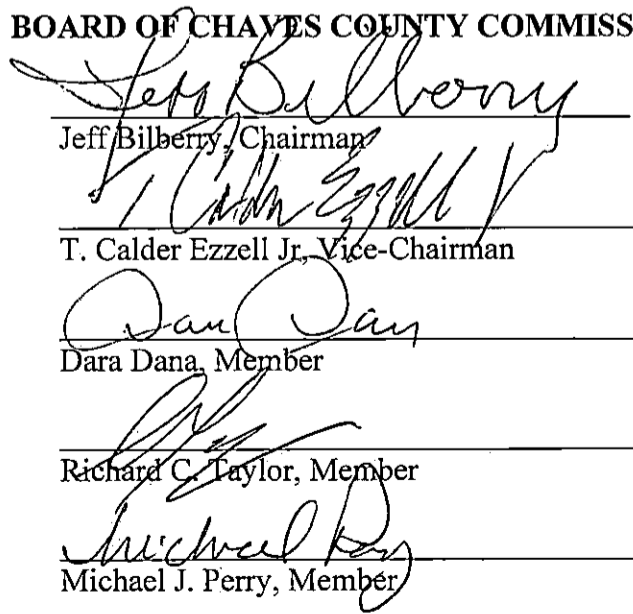 BOARD OF CHAVES COUNTY COMMISS
Jeff Bilberry
Jeff Bilberry, Chairman
T Calder Ezzell Jr
T. Calder Ezzell Jr, Vice-Chairman
Dara Dana, Member
Richard C. Taylor, Member
Michael Perry
Michael J. Perry, Member